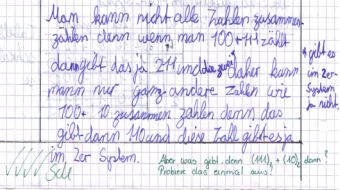 Man kann nicht alle Zahlen zusammen
zählen denn wenn man 100+111 zählt
dann gibt das ja 211 und das gibt es im 2er-System ja nicht. daher kann
mann nur ganz andere Zalen wie
100+ 10 zusammen zählen denn das
gibt dann 110 und diese Zall gibt es ja
im 2er System.
Aber was gibt denn (111)₂ + (10)₂ dann?
Probiere das einmal aus!